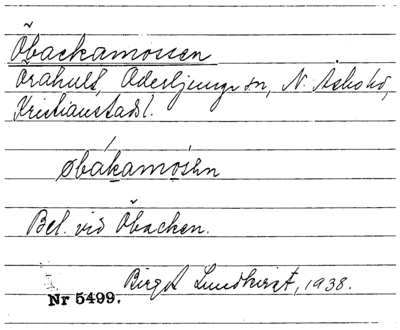 Öbackamossen
Örahult, Oderljunga sn, N. Åsbo hd,
Kristianstads l.
øbákamosen
Bel. vid Öbacken.
Birgit Lundkvist, 1938.
Nr 5499.